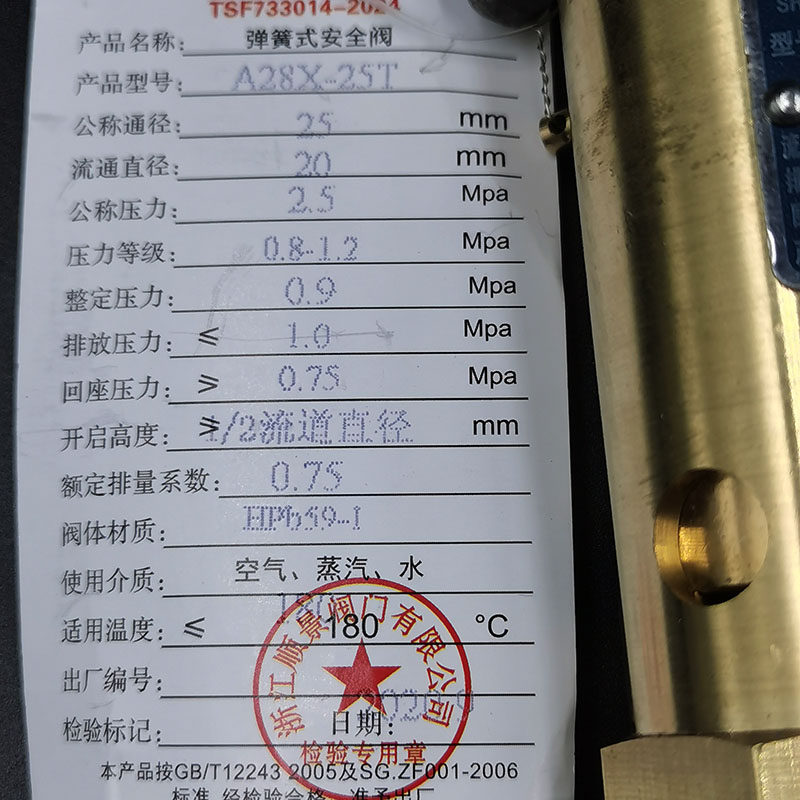 TSF733014-2024
产品名称: 弹簧式安全阀
产品型号: A28X-25T
公称通径: 25 mm
流通直径: 20 mm
公称压力: 2.5 Mpa
压力等级: 0.8-1.2 Mpa
整定压力: 0.9 Mpa
排放压力: ≤ 1.0 Mpa
回座压力: ≥ 0.75 Mpa
开启高度: ≥ 1/2流道直径 mm
额定排量系数: 0.75
阀体材质: HPb59-1
使用介质: 空气、蒸汽、水
适用温度: ≤ 180 °C
出厂编号:
检验标记: 日期:
浙江顺景阀门有限公司
检验专用章
本产品按GB/T12243 2005及SG.ZF001-2006
标准 经检验合格 准予出厂
型